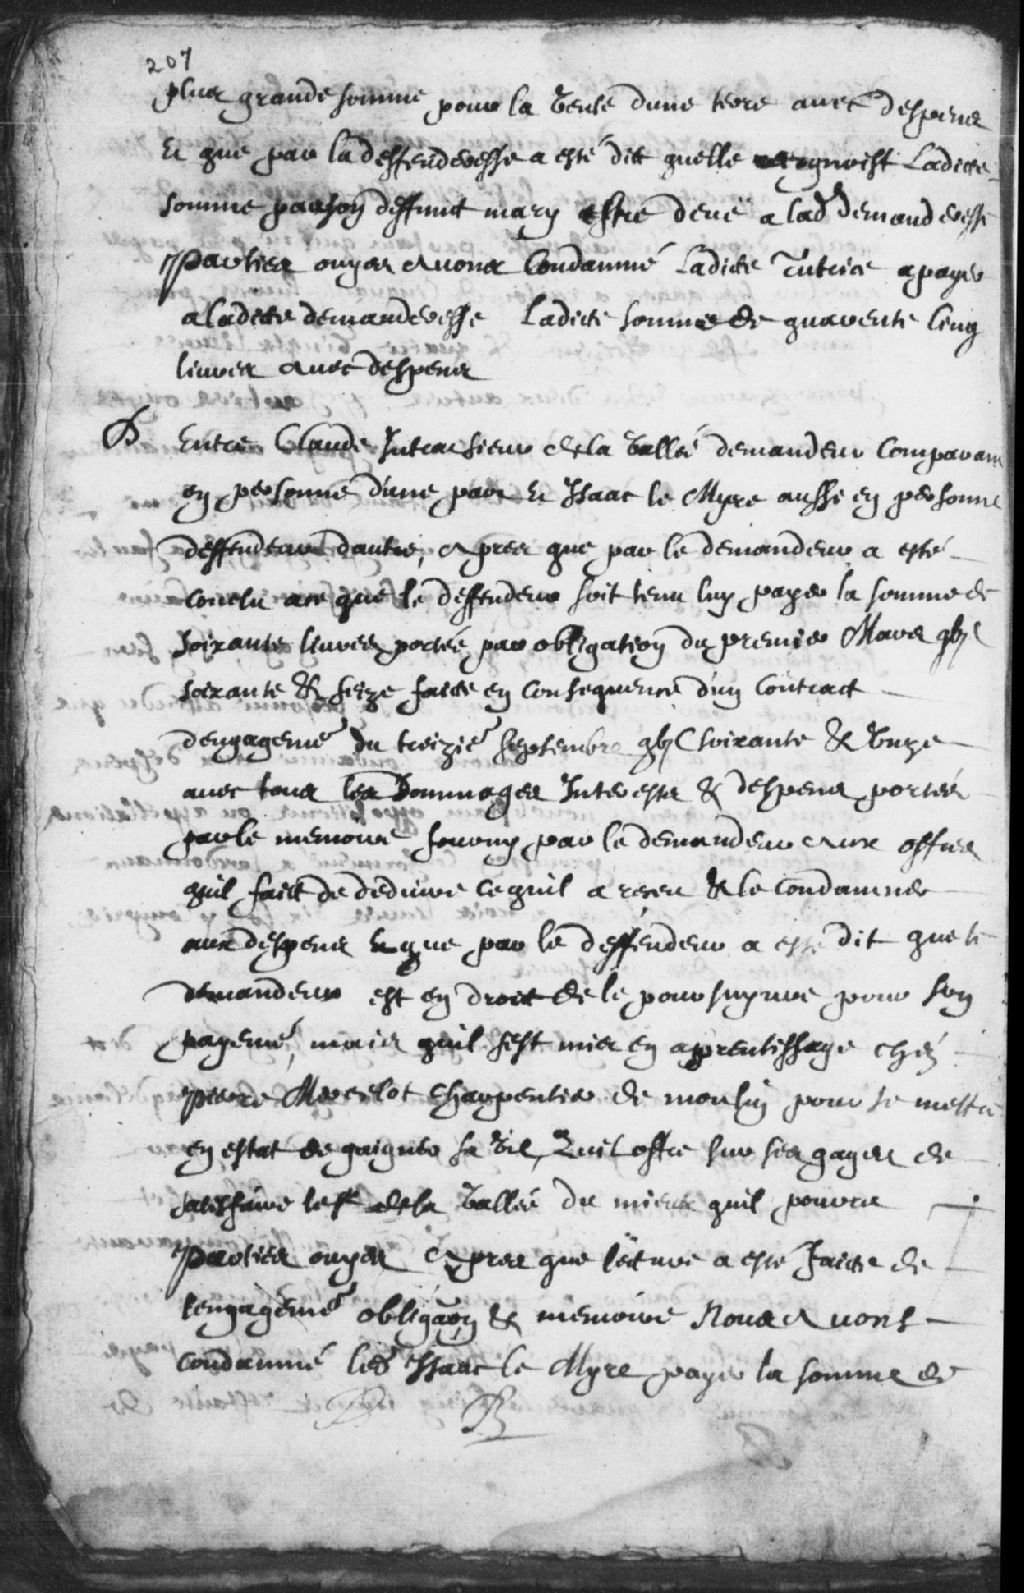 207
plus grande somme pour la vente dune terre avec despens
Et que par la deffenderesse a esté dit quelle recognoist Ladicte
somme par son deffunct mary estre deue a lad demanderesse
Parties ouyes Avons Condamné Ladicte Tutrice a payer
a Ladicte demanderesse Ladicte somme de quarente Cinq
livres Avec despens
Entre Claude Jutras sieur de la Vallée demandeur Comparant
en personne d'une part Et Isaac le Myre aussi en personne
deffendeur dautre, Apres que par le demandeur a esté
Conclu ace que le deffendeur soit tenu luy payer la somme de
soixante livres portée par obligation du premier Mars gbjC
soixante & seize faicte en Consequence d'un Contract
dengagemt du treizie septembre gbjC soixante & Unze
avec tous les Dommages Interests & despens portés
par le memoire fourny par le demandeur Aux offres
quil faict de deduire ce quil a receu & le Condamner
aux despens Et que par le deffendeur a esté dit que le
demandeur est en droict de le poursuyvre pour son
payemt, mais quil s'est mis en aprentissage chéz
Pierre Mercelot charpentier de moulin pour se mettre
en estat de gaigner sa vie, Quil offre sur ses gages de
satisfaire le sr de la Vallée du mieux quil pourra
Parties ouyes Apres que lecture a esté faicte de
lengagemt obligaon & memoire Nous Avons
Condamné led Isaac le Myre payer la somme de